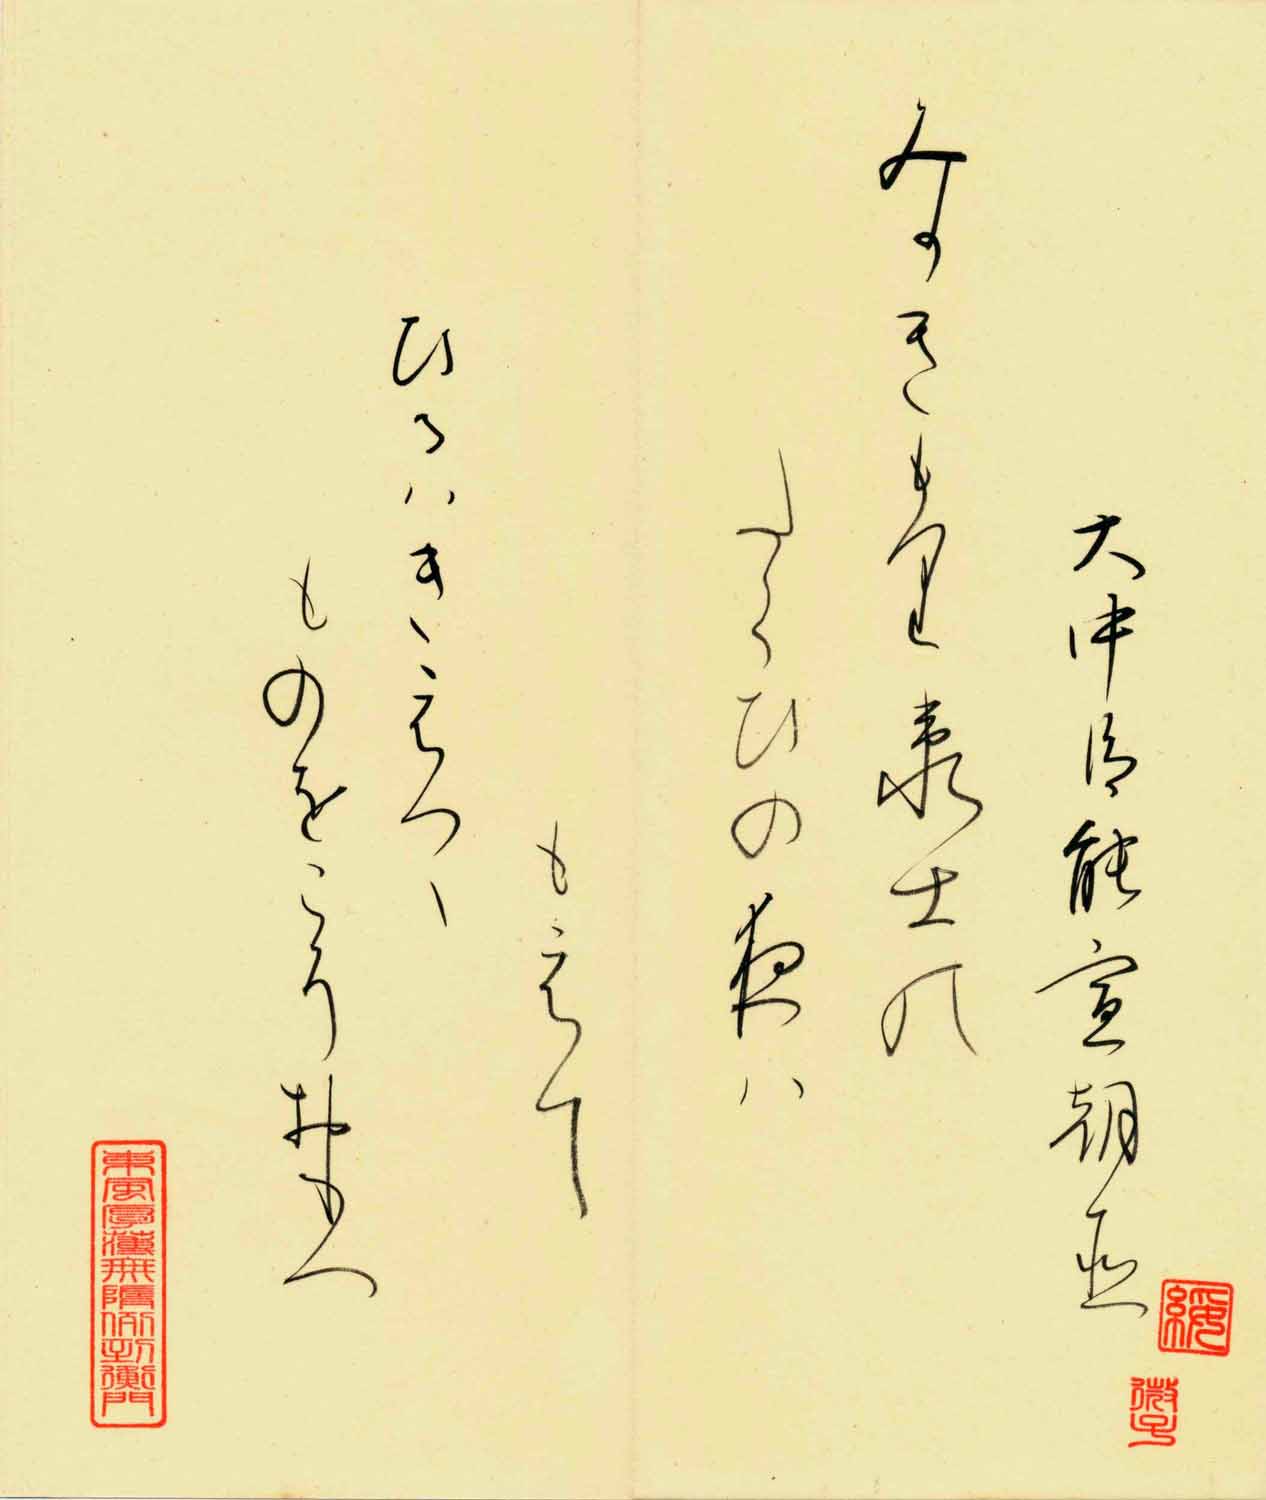 大中臣能宣朝臣
みかきもり衛士の
たくひの夜ハ
もえて
ひるハきえつゝ
ものをこそおもへ